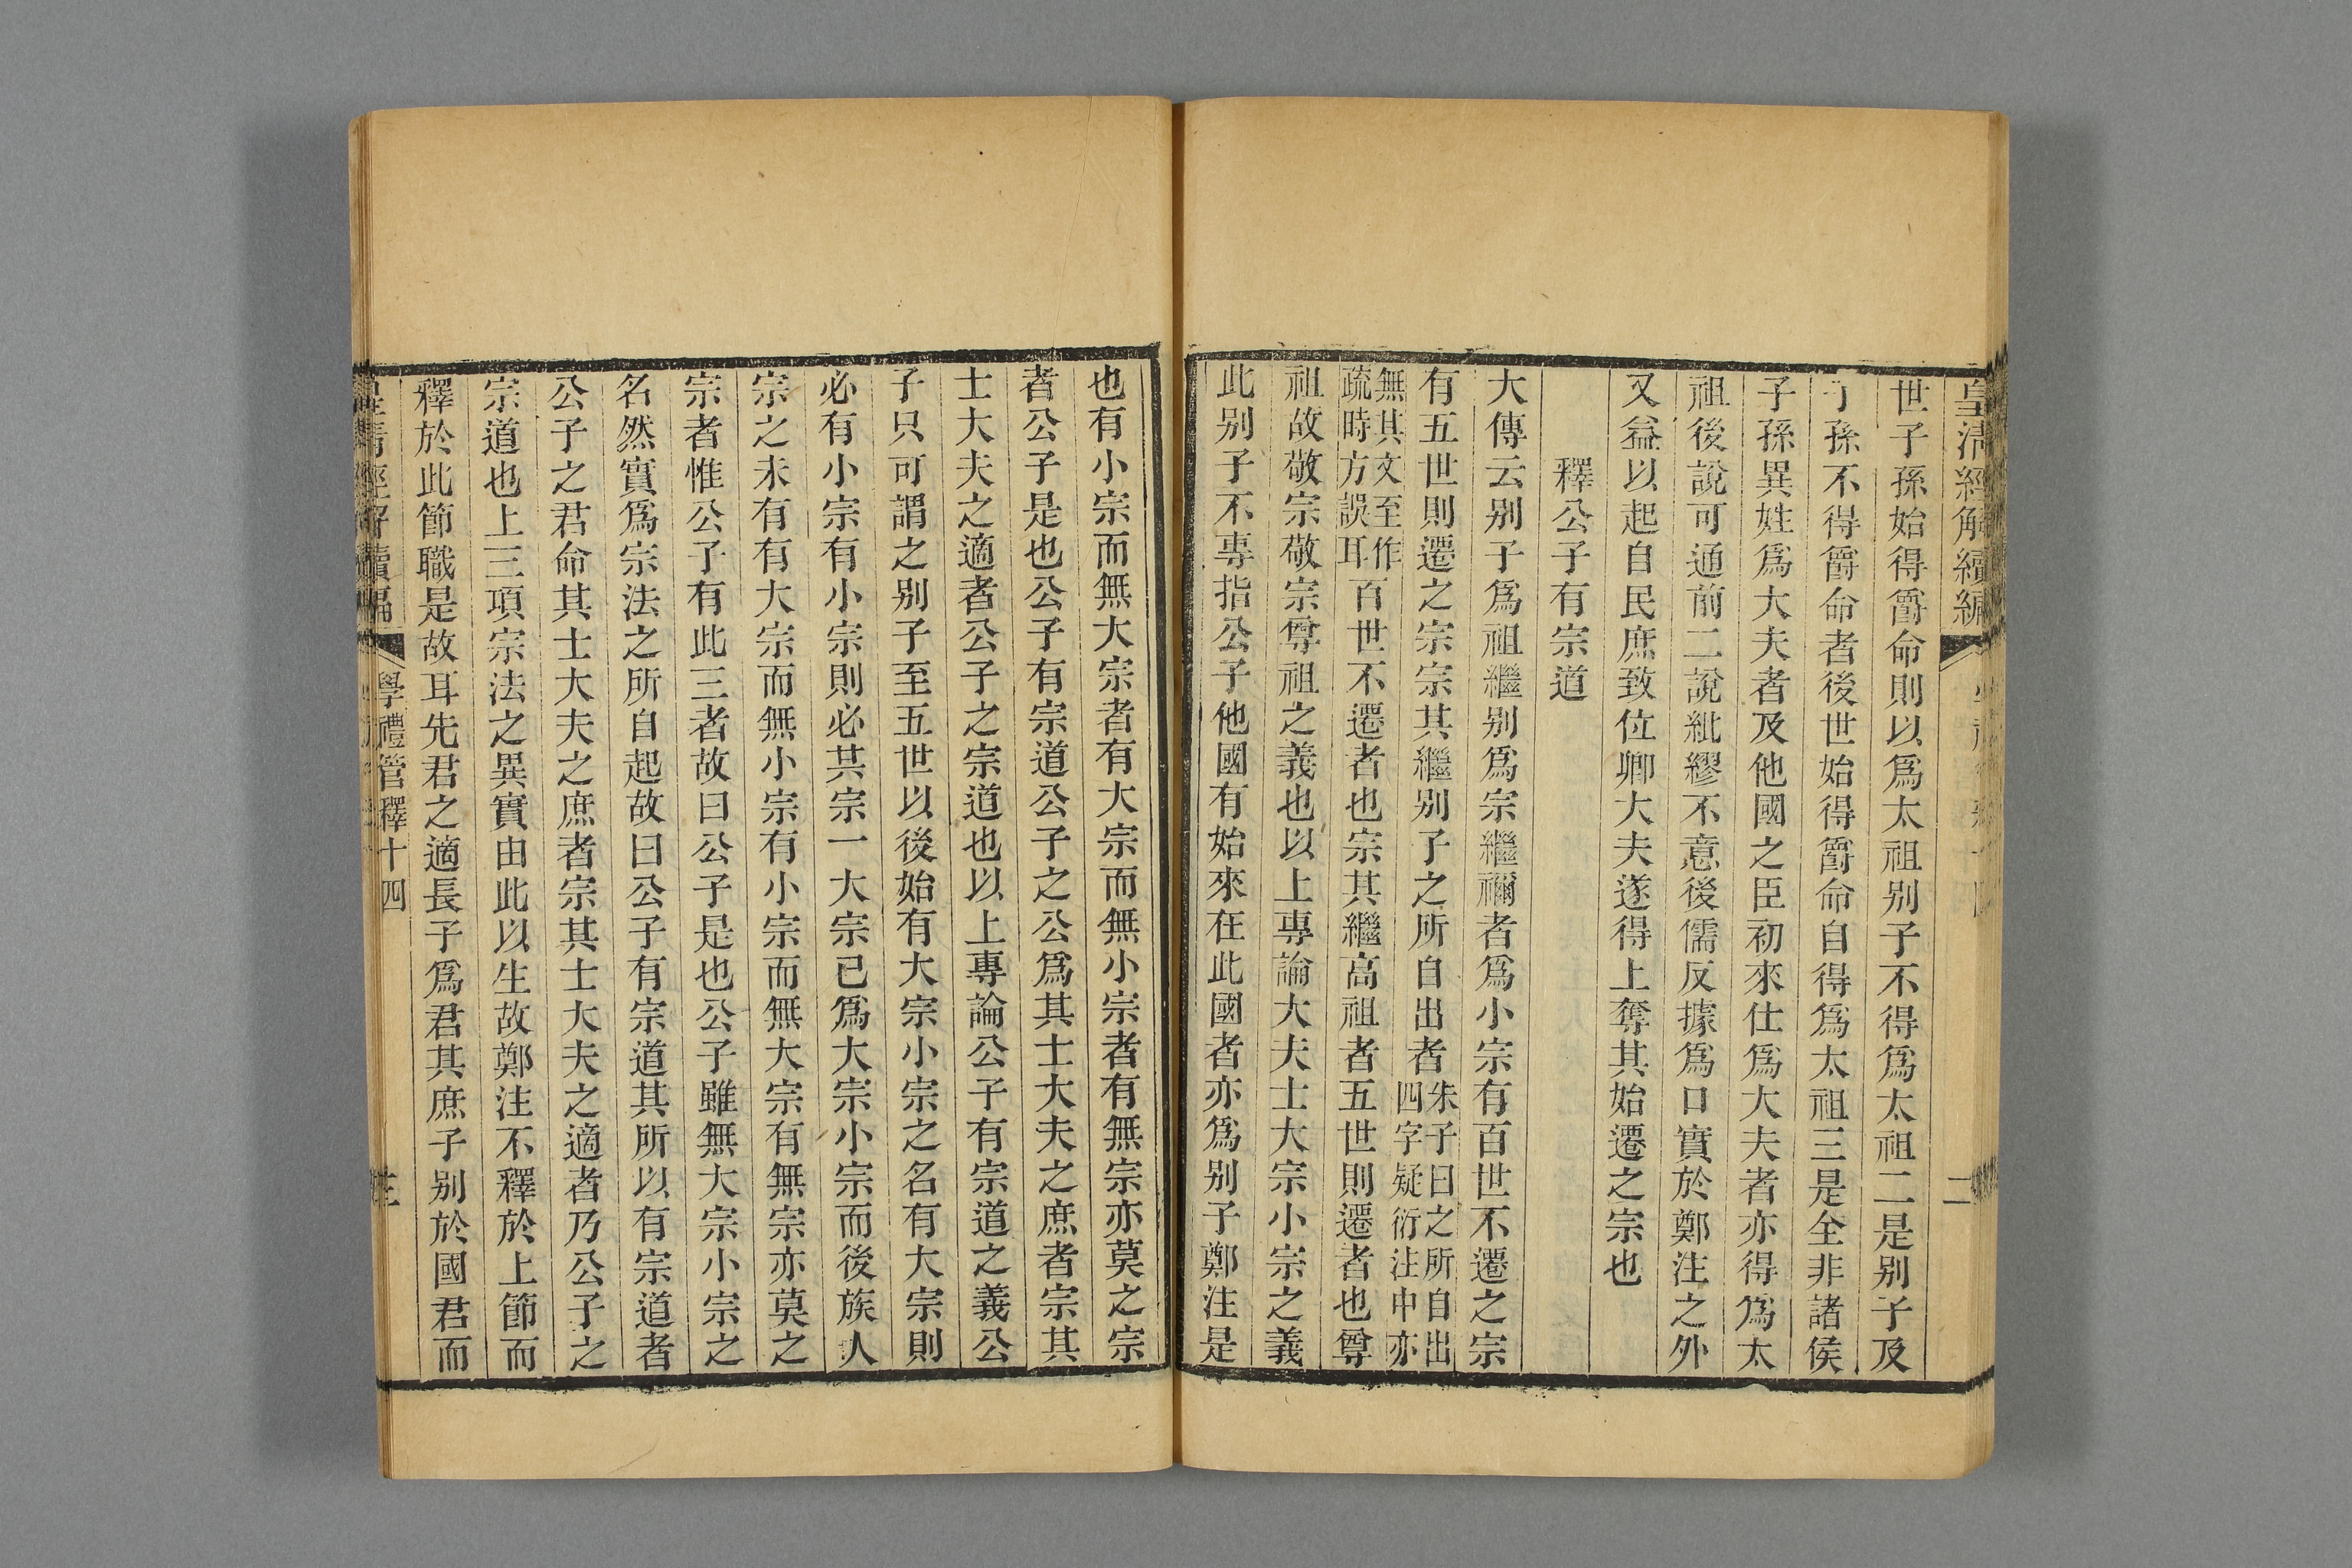 皇清經解續編
二
世子孫始得爵命則以爲太祖別子不得爲太祖二是別子及
子孫不得爵命者後世始得爵命自得爲太祖三是全非諸侯
子孫異姓爲大夫者及他國之臣初來仕爲大夫者亦得爲太
祖後說可通前二說紕繆不意後儒反據爲口實於鄭注之外
又益以起自民庶致位卿大夫遂得上奪其始遷之宗也
釋公子有宗道
大傳云別子爲祖繼別爲宗繼禰者爲小宗有百世不遷之宗
有五世則遷之宗宗其繼別子之所自出者朱子曰之所自出四字疑衍注中亦
無其文至作疏時方誤耳百世不遷者也宗其繼高祖者五世則遷者也尊
祖故敬宗敬宗尊祖之義也以上專論大夫士大宗小宗之義
此別子不專指公子他國有始來在此國者亦爲別子鄭注是
也有小宗而無大宗者有大宗而無小宗者有無宗亦莫之宗
者公子是也公子有宗道公子之公爲其士大夫之庶者宗其
士大夫之適者公子之宗道也以上專論公子有宗道之義公
子只可謂之別子至五世以後始有大宗小宗之名有大宗則
必有小宗有小宗則必其宗一大宗已爲大宗小宗而後族人
宗之未有有大宗而無小宗有小宗而無大宗有無宗亦莫之
宗者惟公子有此三者故曰公子是也公子雖無大宗小宗之
名然實爲宗法之所自起故曰公子有宗道其所以有宗道者
公子之君命其士大夫之庶者宗其士大夫之適者乃公子之
宗道也上三項宗法之異實由此以生故鄭注不釋於上節而
釋於此節職是故耳先君之適長子爲君其庶子別於國君而
皇清經解續編
學禮管釋十四